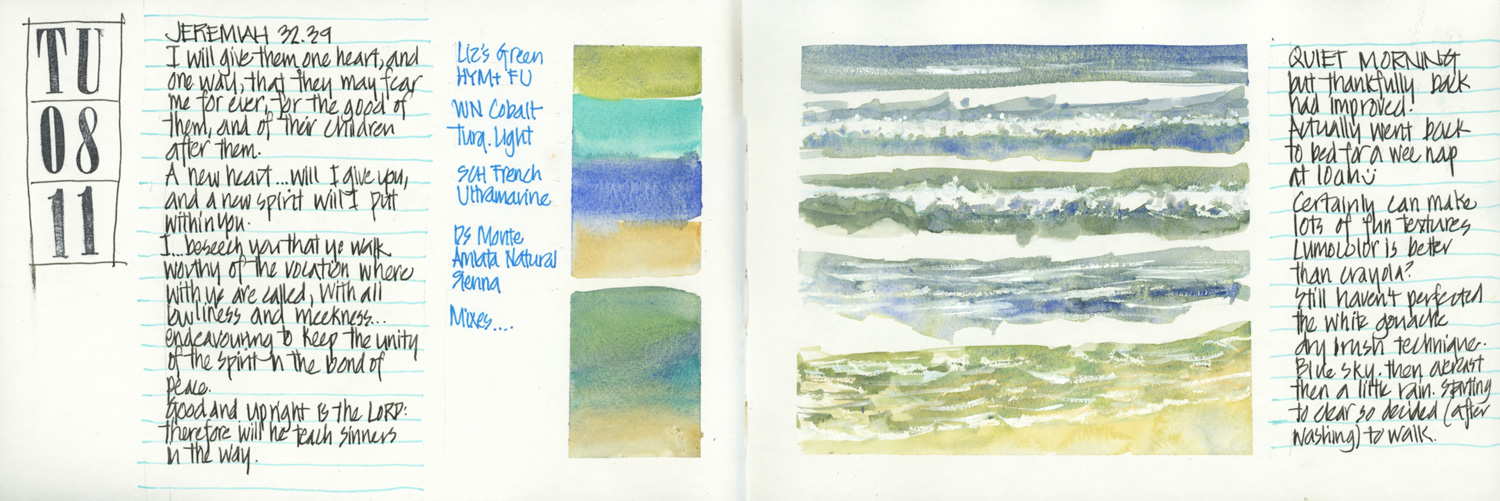 TU
08
11
JEREMIAH 32.39
I will give them one heart, and
one way, that they may fear
me for ever, for the good of
them, and of their children
after them.
A new heart...will I give you,
and a new spirit will I put
within you.
I...beseech you that ye walk
worthy of the vocation where
with ye are called, with all
lowliness and meekness...
endeavouring to keep the unity
of the spirit in the bond of
peace.
Good and upright is the LORD:
therefore will he teach sinners
in the way.
Liz's Green
HYM+ FU
WN Cobalt
Turq. Light
SCH French
Ultramarine
DS Monte
Amiata Natural
Sienna
Mixes....
QUIET MORNING
but thankfully back
had improved!
Actually went back
to bed for a wee nap
at 10am
Certainly can make
lots of fun textures
Lumocolor is better
than crayola?
Still haven't perfected
the white gouache
dry brush technique.
Blue sky. then overcast
then a little rain. Starting
to clear so decided (after
washing) to walk.